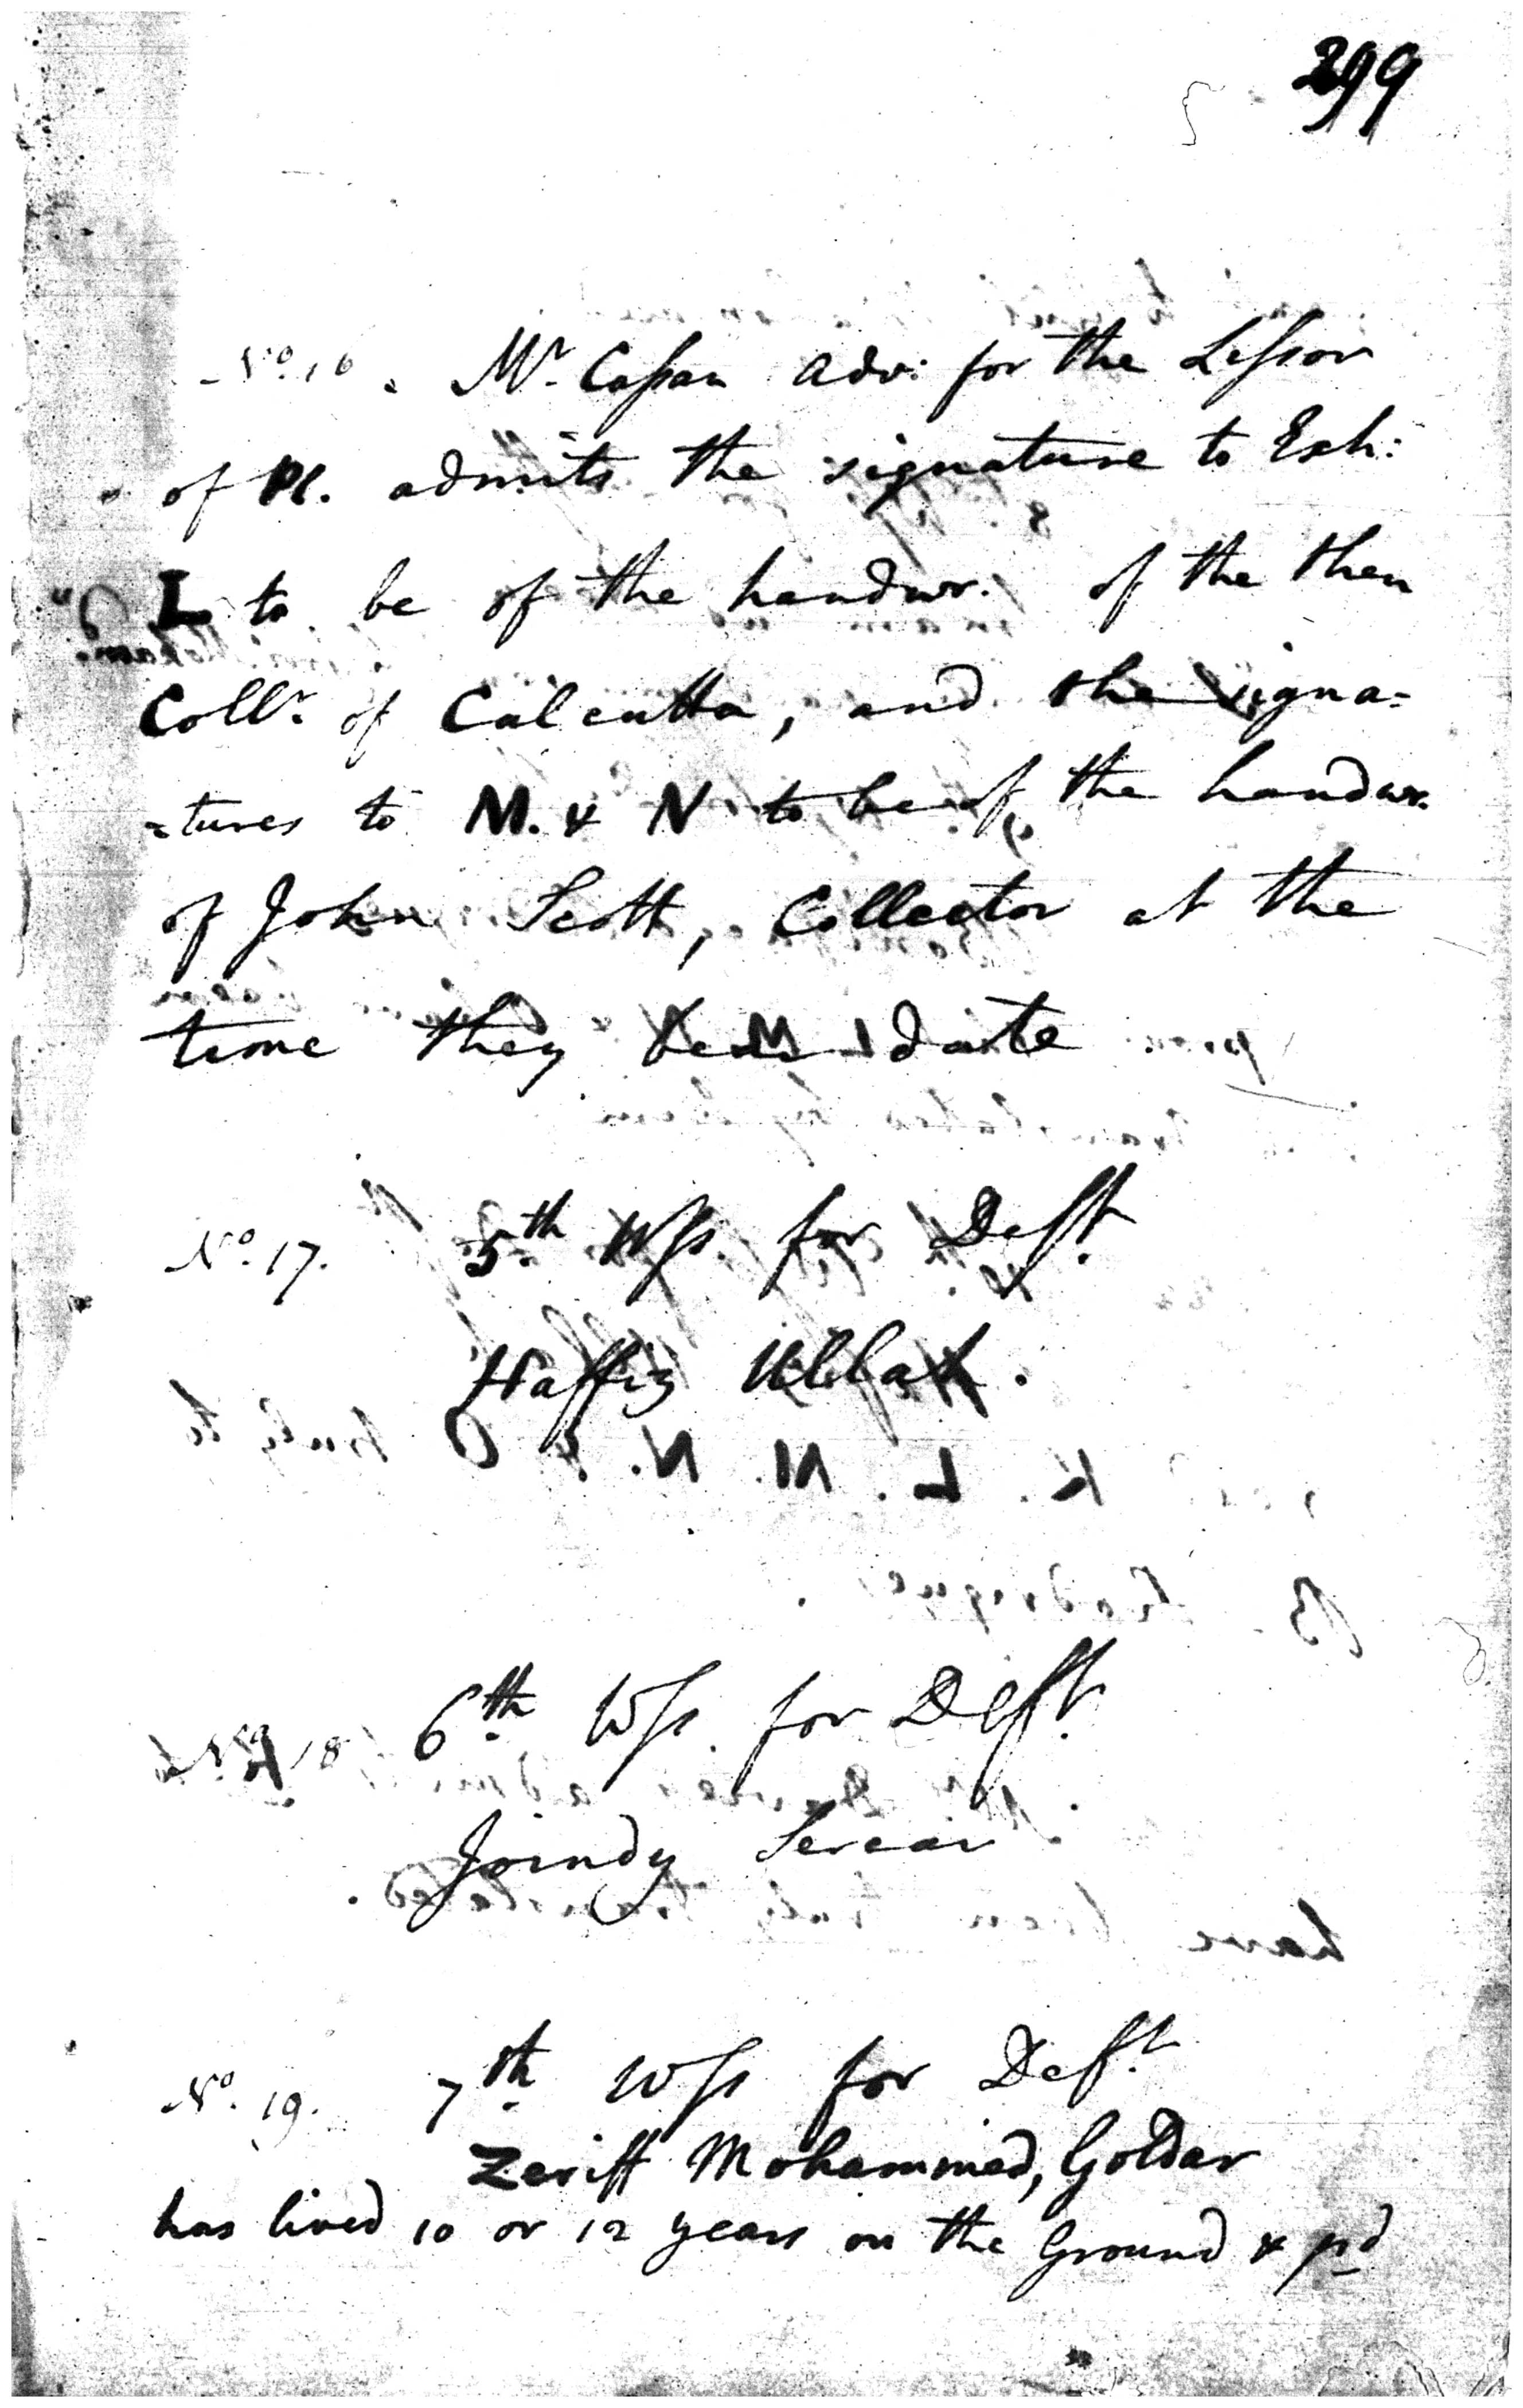 299
No. 16. Mr. Cassan Adv: for the Lessor
of Pl. admits the signature to Exh:
L to be of the handwr. of the then
Collr. of Calcutta, and the signa=
=tures to M. & N to be of the handwr.
of John Scott, Collector at the
time they bear date
No. 17. 5th Wss. for Deft.
Haffiz Ullah.
No. 18 6th Wss. for Deft.
Joindy Sercar
No. 19. 7th Wss for Deft.
Zeriff Mohammed, Goldar
has lived 10 or 12 years on the Ground & pd